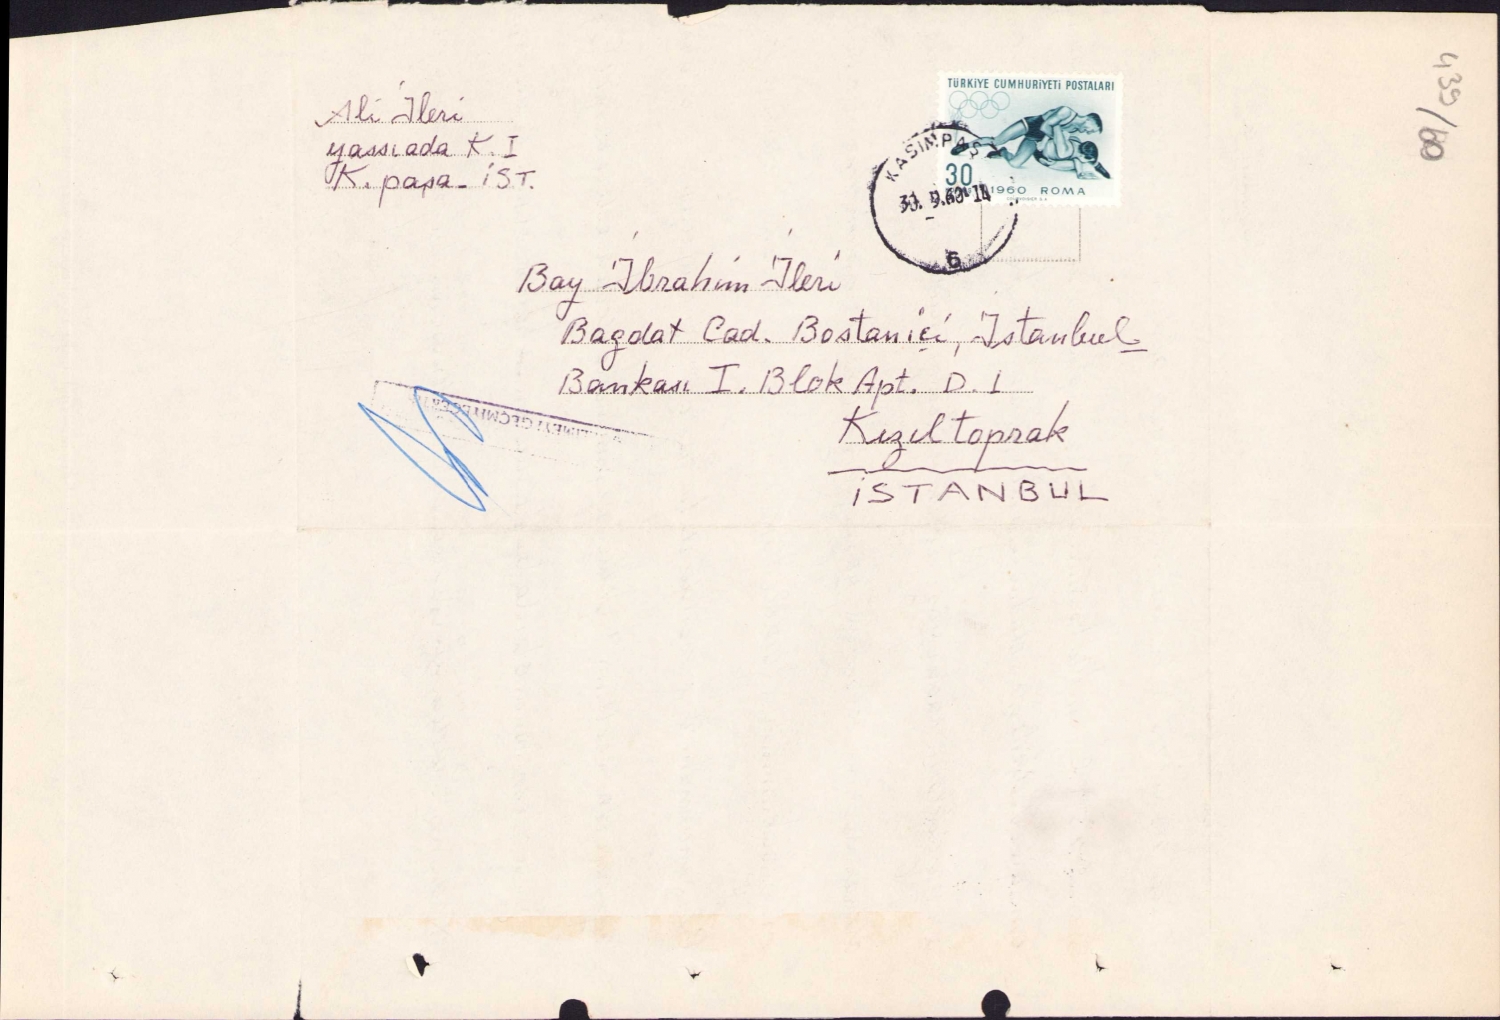 439/60
TÜRKİYE CUMHURİYETİ POSTALARI
30
1960 ROMA
KASIMPAŞ
6
Ali İleri
yassıada K. I
K. paşa - İST.
Bay İbrahim İleri
Bagdat Cad. Bostaniçi, İstanbul
Bankası I. Blok Apt. D. 1
Kızıltoprak
İSTANBUL